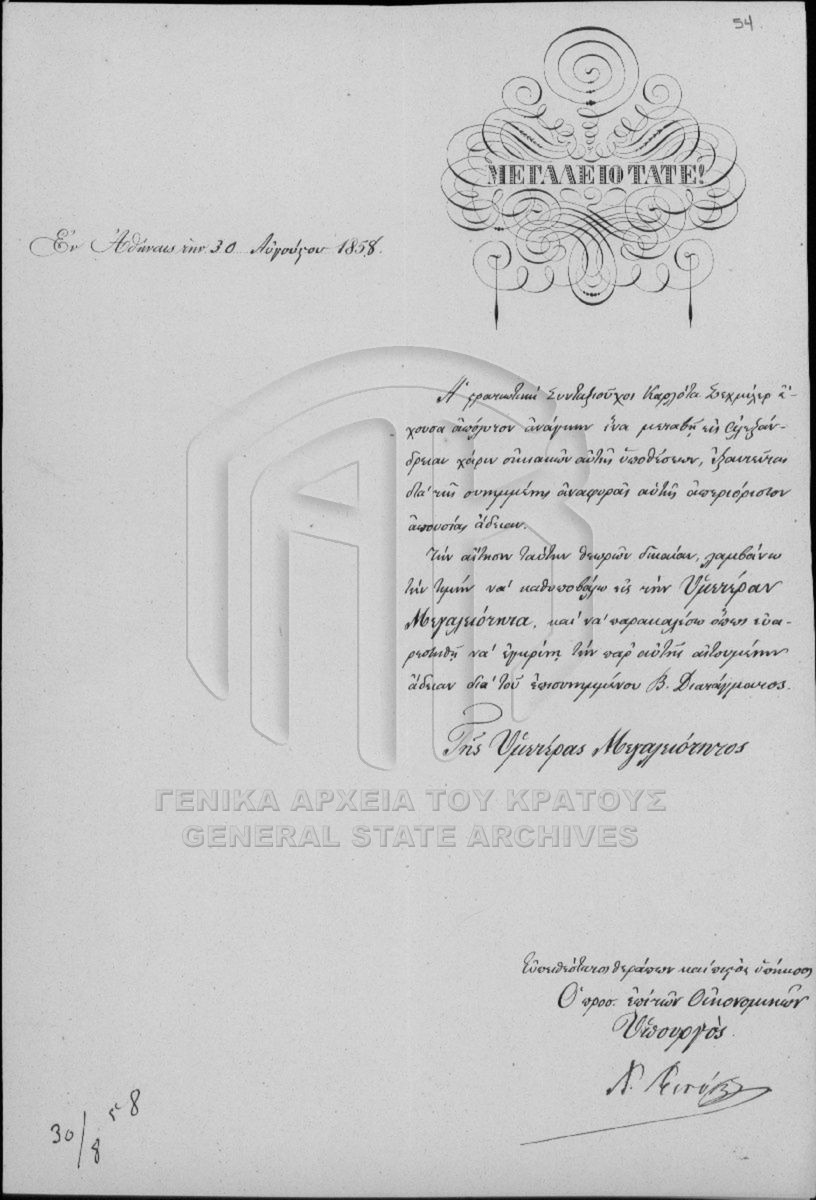 54
ΜΕΓΑΛΕΙΟΤΑΤΕ!
Ἐν Ἀθήναις τὴν 30 Αὐγούστου 1858.
Ἡ στρατιωτικὴ Συνταξιοῦχος Καρλόττα ἔ-
χουσα ἀπόλυτον ἀνάγκην ἵνα μεταβῇ εἰς Ἀλεξάν-
δρειαν χάριν οἰκιακῶν αὐτῆς ὑποθέσεων, ἐξαιτεῖται
διὰ τῆς συνημμένης ἀναφορᾶς αὐτῆς ἀπεριόριστον
ἀπουσίας ἄδειαν.
Τὴν αἴτησιν ταύτην θεωρῶν δικαίαν, λαμβάνω
τὴν τιμὴν νὰ καθυποβάλω εἰς τὴν Ὑμετέραν
Μεγαλειότητα, καὶ νὰ παρακαλέσω ὅπως εὐα-
ρεστηθῇ νὰ ἐγκρίνῃ τὴν παρ' αὐτῆς αἰτουμένην
ἄδειαν διὰ τοῦ ἐπισυνημμένου Β. Διατάγματος.
Τῆς Ὑμετέρας Μεγαλειότητος
ΓΕΝΙΚΑ ΑΡΧΕΙΑ ΤΟΥ ΚΡΑΤΟΥΣ
GENERAL STATE ARCHIVES
Εὐπειθέστατος θεράπων καὶ πιστὸς ὑπήκοος
Ὁ προσ. ἐπὶ τῶν Οἰκονομικῶν
Ὑπουργὸς
30/8 58